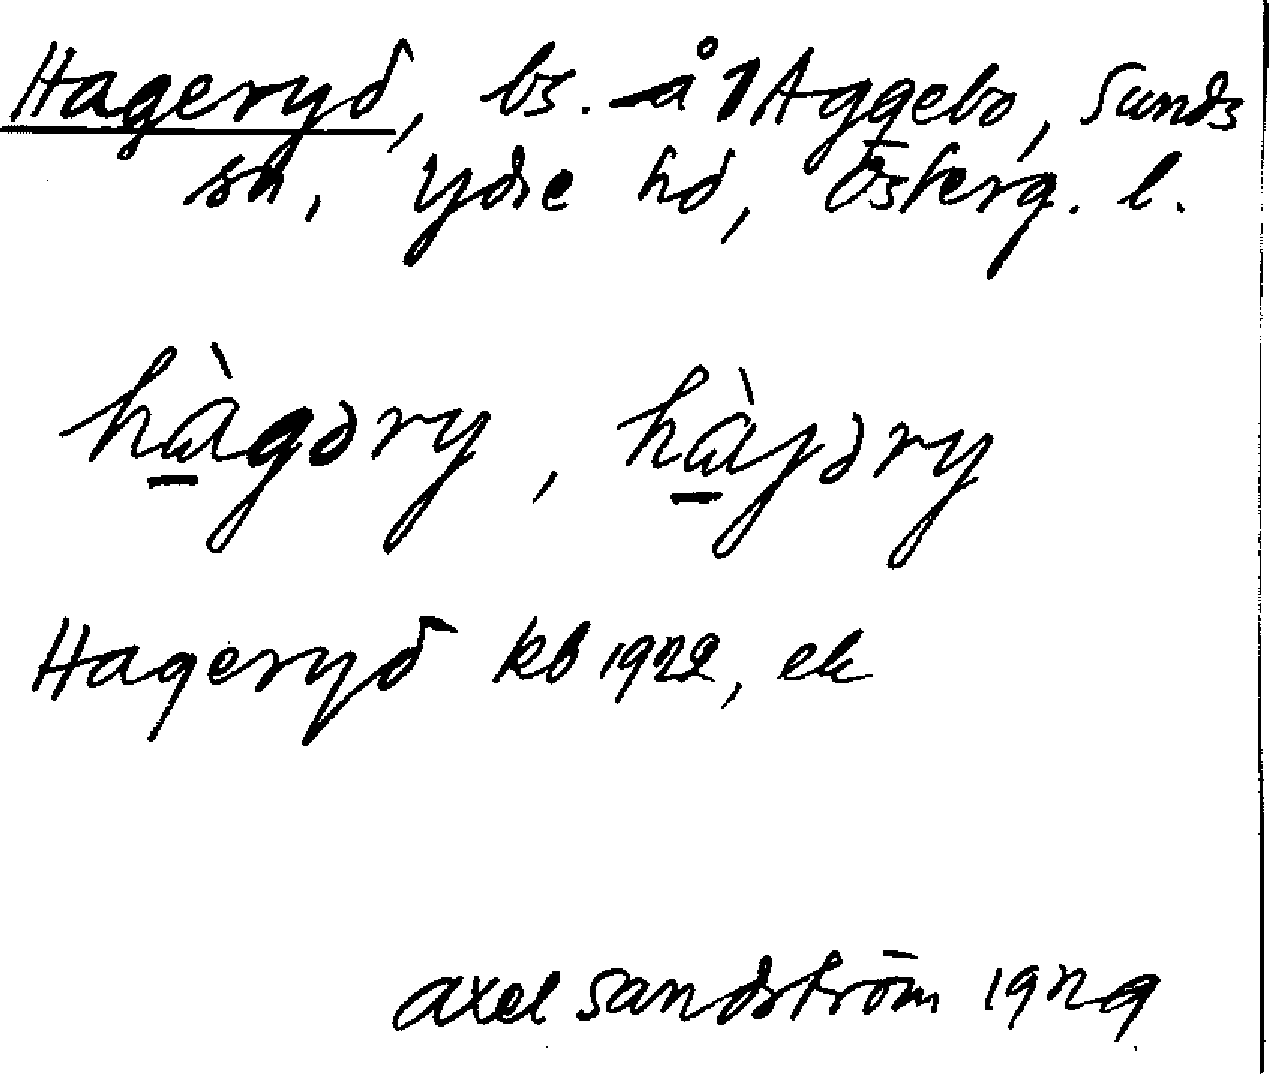 Hageryd, bs. å 1 Aggebo, Sunds
sn, Ydre hd, Österg. l.
hàgəry, hàjəry
Hageryd kb 1922, ek
axel sandström 1929